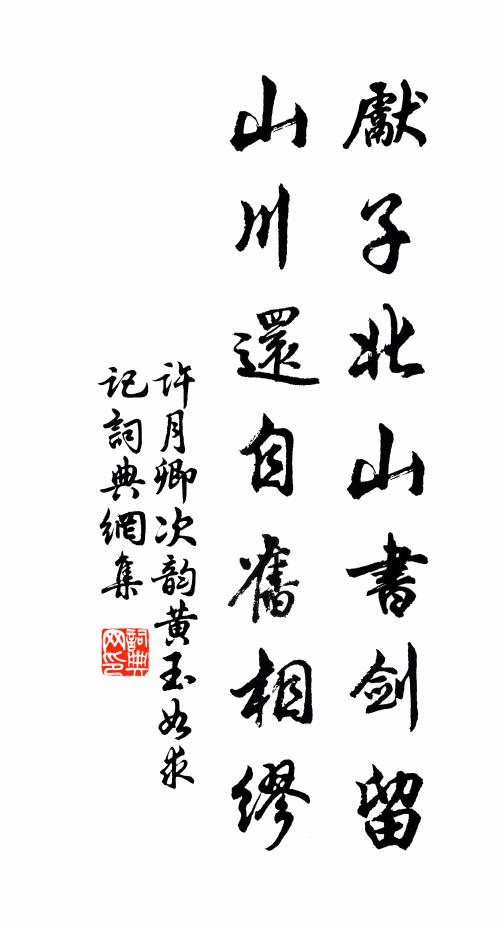 獻子北山書劍留
山川還自舊相繆
許月卿次韵黃玉如求
記詞典網集
詞典
网印